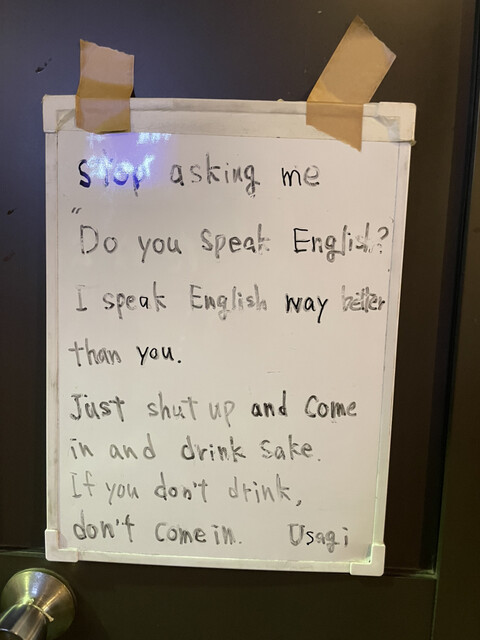 stop asking me
"Do you speak English?
I speak English way better
than you.
Just shut up and Come
in and drink sake.
If you don't drink,
don't come in. Usagi